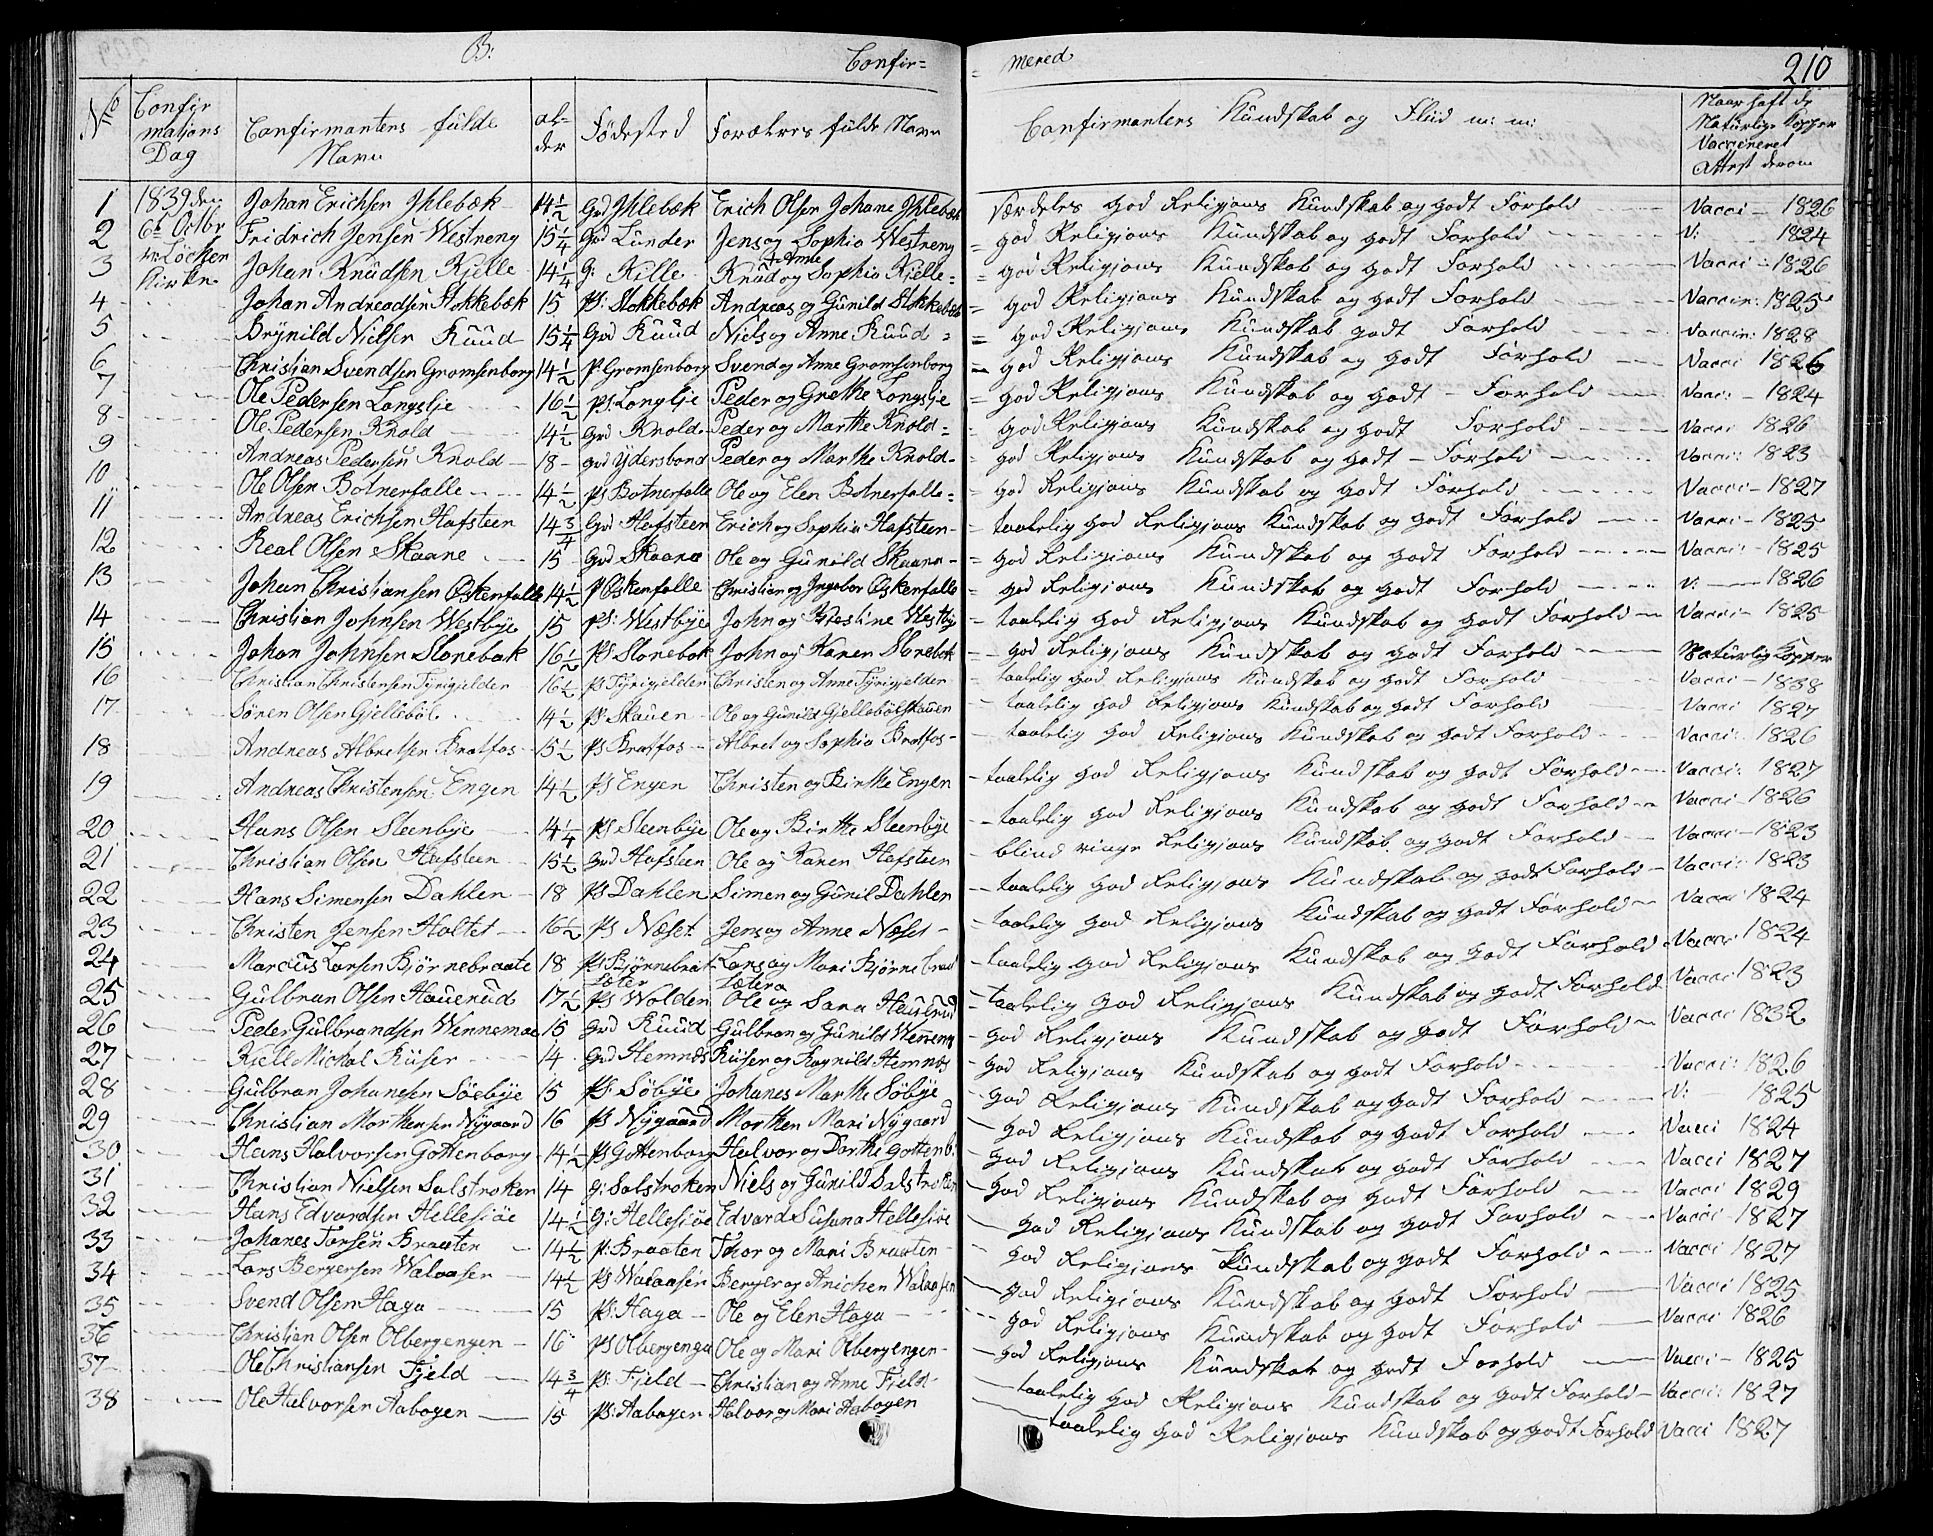 B: Confir= = mered 210
No Confir mations Dag Confirmantens fulde Navn al= der Fødested Forældres fulde Navn Confirmantens Kundskab og Fliid m: m: Naar haft de Naturlige Kopper Vaccineret Attest derom
1 1839 den Johan Erichsen Ihlebæk 14 1/2 Grd Ihlebæk Erich Olsen Johane Ihlebæk særdeles god Religions Kundskab og godt Forhold Vacci - 1826
2 6te Octbr Fridrich Jensen Westreng 15 1/4 Grd Lunder Jens og Sophia Westreng = god Religions Kundskab og godt Forhold V: 1824
3 i Løcken Kirke Johan Knudsen Kjelle 14 1/4 G: Kille Knud og Anne Sophia Kjelle = god Religions Kundskab og godt Forhold Vacci - 1826
4 Johan Andreadsen Stokkebæk 15 Ps: Stokkebæk Andreas og Gunild Stokkebæk = god Religions Kundskab og godt Forhold Vaccin: 1825
5 Brynild Nielsen Ruud 15 1/4 Grd Ruud Niels og Anne Ruud = god Religions Kundskab godt Forhold Vaccin: 1828
6 Christian Svendsen Gromsenborg 14 1/2 P: Gromsenborg Svend og Anne Gromsenborg = god Religions Kundskab og godt Forhold Vacci 1826
7 Ole Pedersen Langslje 16 1/2 Ps: Langslje Peder og Grethe Langslje = god Religions Kundskab og godt - Forhold Vacci - 1824
8 Ole Pedersen Knold 14 1/2 Grd Knold Peder og Marthe Knold = = god Religions Kundskab og godt Forhold Vacci 1826
9 Andreas Pedersen Knold 18 Grd Ydersbond Peder og Marthe Knold = god Religions Kundskab og godt - Forhold Vacci: 1823
10 Ole Olsen Botnerfalle 14 1/2 Ps Botnerfalle Ole og Elen Botnerfalle = = god Religions Kundskab og godt Forhold Vacci - 1827
11 Andreas Erichsen Hafsteen 14 3/4 Grd Hafsteen Erich og Sophia Hafsteen = taalelig god Religions Kundskab og godt Forhold Vacci - 1825
12 Real Olsen Skaane 15 Grd Skaane Ole og Gunild Skaane = god Religions Kundskab og godt Forhold Vacci: - 1825
13 Johan Christiansen Oskenfalle 14 1/2 P Oskenfalle Christian og Ingebor Oskenfalle = god Religions Kundskab og godt Forhold V: 1826
14 Christian Johnsen Westbye 15 Ps: Westbye John og Kiestine Westby = taalelig god Religions Kundskab og godt Forhold Vacci - 1825
15 Johan Johnsen Slorebæk 16 1/2 Ps Slorebæk John og Karen Slorebæk = god Religions Kundskab og godt Forhold Naturlig Kopper
16 Christian Christensen Tyrigjelder 16 1/2 Ps Tyrigjelden Christen og Anne Tyrigjelder - taalelig god Religions Kundskab og godt Forhold Vacci - 1838
17 Søren Olsen Gjellebøl 14 1/2 Ps: Skauen Ole og Gunild Gjellebølskauen - taalelig god Religions Kundskab og godt Forhold Vacci 1827
18 Andreas Albretsen Bratfos 15 1/2 Ps Bratfos Albret og Sophia Bratfos - taalelig god Religions Kundskab og godt Forhold Vacci: 1826
19 Andreas Christensen Engen 14 1/2 Ps Engen Christen og Birthe Engen - taalelig god Religions Kundskab og godt Forhold Vacci: 1827
20 Hans Olsen Steenbye 14 1/4 Ps Steenbye Ole og Birthe Steenbye - taalelig god Religions Kundskab og godt Forhold Vacci - 1826
21 Christian Olsen Hafsteen 15 1/2 Grd Hafsteen Ole og Karen Hafsteen - blind ringe Religions Kundskab og godt Forhold Vacci - 1823
22 Hans Simensen Dahlen 18 Ps Dahlen Simen og Gunil Dahlen - taalelig god Religions Kundskab og godt Forhold Vacci: 1823
23 Christen Jensen Holtet 16 1/2 Ps Næset Jens og Anne Næset - taalelig god Religions Kundskab og godt Forhold Vacci 1824
24 Marcus Larsen Bjørnebraate 18 Ps Bjørnebrat Lars og Mari Bjørnebraat - taalelig god Religions Kundskab og godt Forhold Vacci 1824
25 Gulbran Olsen Hauerud 17 1/2 Ps Wolden Ole og Sara Hauerud - taalelig god Religions Kundskab og godt Forhold Vacci 1823
26 Peder Gulbrandsen Wennemoe 15 Grd Ruud Gulbran og Gunild Wennemo - god Religions Kundskab og godt Forhold Vacci 1832
27 Kiell Michal Riiser 14 Grd Hemnæs Riiser og Ragnild Hemnæs - god Religions Kundskab og godt Forhold Vacci: 1826
28 Gulbran Johanesen Søebye 15 Ps: Søbye Johanes Marthe Søbye - god Religions Kundskab og godt Forhold V: 1825
29 Christian Morthensen Nygaard 16 Ps Nygaard Morthen Mari Nygaard - god Religions Kundskab og godt Forhold Vacci 1824
30 Hans Halvorsen Gottenborg 14 1/2 Ps Gottenborg Halvor og Dorthe Gottenb: - god Religions Kundskab og godt Forhold Vacci 1827
31 Christian Nielsen Salstroken 14 G: Salstroken Niels og Gunild Salstroken - god Religions Kundskab og godt Forhold Vacci 1829
32 Hans Edvardsen Hellesiøe 14 1/2 G: Hellesiøe Edvard Susana Hellesiøe - god Religions Kundskab og godt Forhold Vacci 1827
33 Johanes Torsen Braaten 14 1/2 P: Braaten Thor og Mari Braaten - god Religions Kundskab og godt Forhold Vacci 1827
34 Lars Bergersen Walaasen 14 1/2 Ps Walaasen Berger og Anichen Walaasen - god Religions Kundskab og godt Forhold Vacci 1825
35 Svend Olsen Haga 15 Ps: Haga Ole og Elen Haga - god Religions Kundskab og godt Forhold Vacci 1826
36 Christian Olsen Olbergengen 16 Ps Olbergenge Ole og Mari Olbergengen - god Religions Kundskab og godt Forhold Vacci - 1825
37 Ole Christiansen Fjeld 14 3/4 Ps: Fjeld Christian og Anne Fjeld - taalelig god Religions Kundskab og godt Forhold Vacci: 1827
38 Ole Halvorsen Aabogen 15 Ps: Aabogen Halvor og Mari Aabogen - taalelig god Religions Kundskab og godt Forhold Vacci 1827